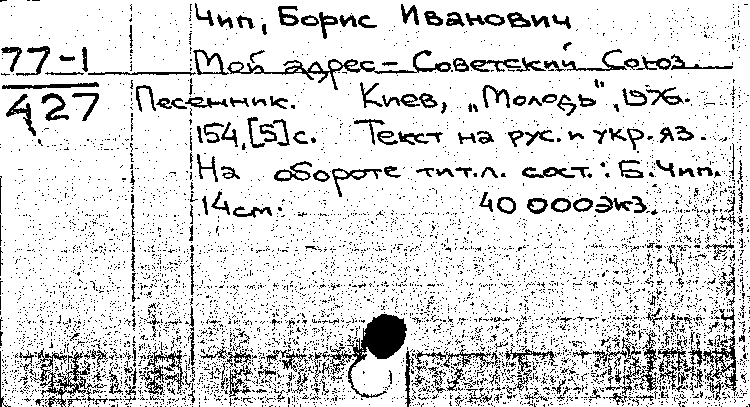 Чип, Борис Иванович
77-1 Мой адрес – Советский Союз.
427 Песенник. Киев, „Молодь", 1976.
154,[5]с. Текст на рус. и укр. яз.
На обороте тит.л. сост.: Б.Чип.
14см. 40 000экз.